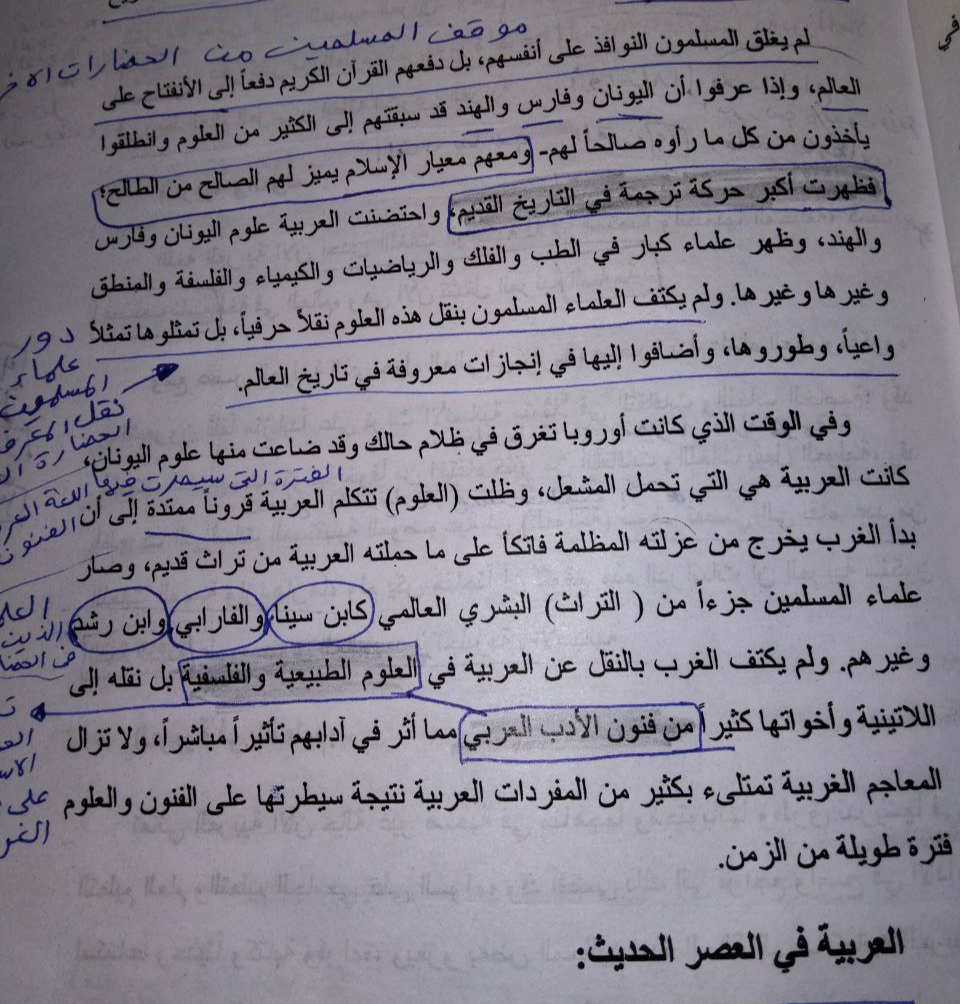 موقف المسلمين من الحضارات
في
لم يغلق المسلمون النوافذ على أنفسهم، بل دفعهم القرآن الكريم دفعاً إلى الأنفتاح على
العالم، وإذا عرفوا أن اليونان وفارس والهند قد سبقتهم إلى الكثير من العلوم وانطلقوا
يأخذون من كل ما رأوه صالحاً لهم- ومعهم معيار الإسلام يميز لهم الصالح من الطالح؛
فظهرت أكبر حركة ترجمة في التاريخ القديم، واحتضنت العربية علوم اليونان وفارس
والهند، وظهر علماء كبار في الطب والفلك والرياضيات والكيمياء والفلسفة والمنطق
وغيرها وغيرها. ولم يكتف العلماء المسلمون بنقل هذه العلوم نقلاً حرفياً، بل تمثلوها تمثلاً
واعياً، وطوروها، وأضافوا إليها في إنجازات معروفة في تاريخ العالم.
دور
علماء
المسلمين
نقل
الحضارة
وفي الوقت الذي كانت أوروبا تغرق في ظلام حالك وقد ضاعت منها علوم اليونان،
الفترة التي سيطرت فيها اللغة
كانت العربية هي التي تحمل المشعل، وظلت (العلوم) تتكلم العربية قروناً ممتدة إلى أن
بدأ الغرب يخرج من عزلته المظلمة فاتكأ على ما حملته العربية من تراث قديم، وصار
علماء المسلمين جزءاً من ( التراث) البشري العالمي كابن سينا، والفارابي، وابن رشد
وغيرهم. ولم يكتف الغرب بالنقل عن العربية في العلوم الطبيعية والفلسفية بل نقله إلى
اللاتينية وأخواتها كثيراً من فنون الأدب العربي مما أثر في آدابهم تأثيراً مباشراً، ولا تزال
المعاجم الغربية تمتلىء بكثير من المفردات العربية نتيجة سيطرتها على الفنون والعلوم
فترة طويلة من الزمن.
الذين
على
العربية في العصر الحديث: